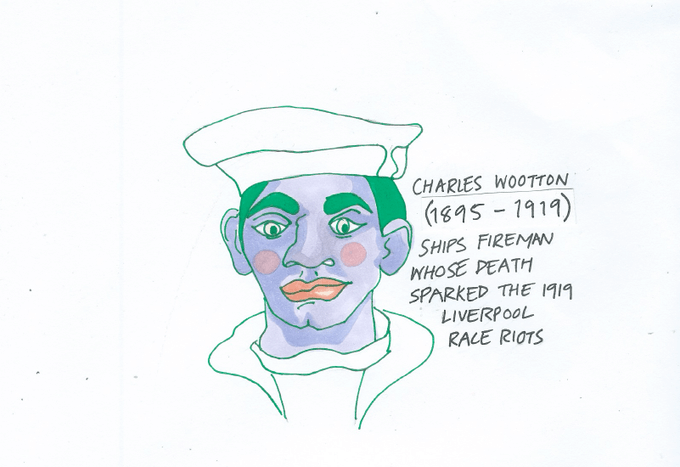 CHARLES WOOTTON
(1895 - 1919)
SHIPS FIREMAN
WHOSE DEATH
SPARKED THE 1919
LIVERPOOL
RACE RIOTS